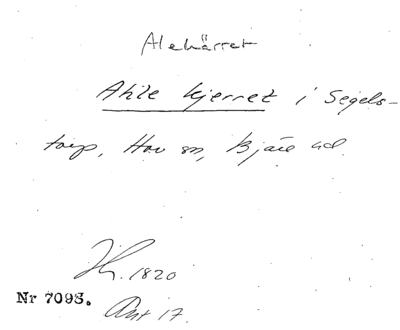 Alekärret
Ahle kjerret i Segels-
torp, Hov sn, Bjäre hd.
Jh. 1820
Nr 7098.
Akt 17